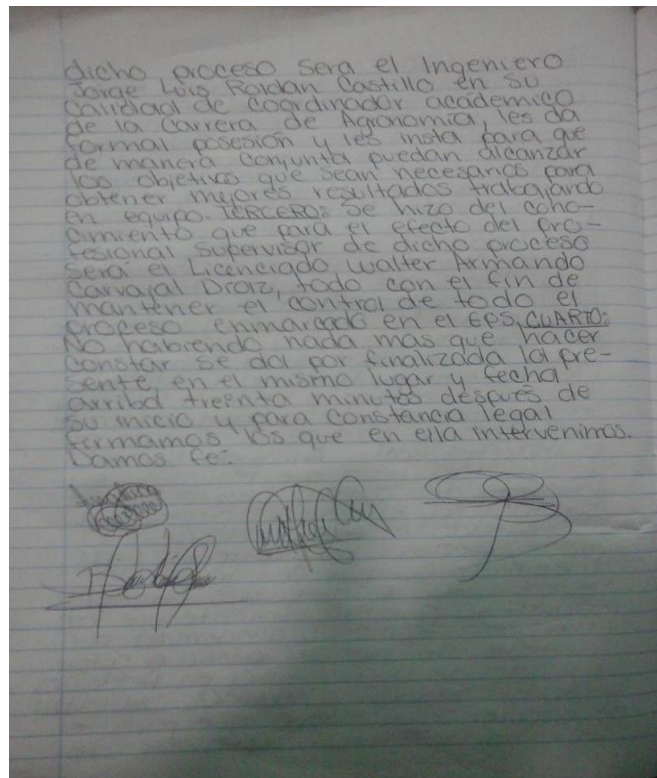 dicho proceso sera el Ingeniero
Jorge Luis Roldan Castillo en su
Calidad de Coordinador académico
de la Carrera de Agronomia, les da
formal posesión y les insta para que
de manera conjunta puedan alcanzar
los objetivos que sean necesarios para
obtener mejores resultados trabajando
en equipo. TERCERO: Se hizo del cono-
cimiento que para el efecto del pro-
fesional supervisor de dicho proceso
será el Licenciado Walter Armando
Carvajal Díaz, todo con el fin de
mantener el control de todo el
proceso enmarcado en el EPS, CUARTO:
No habiendo nada mas que hacer
constar se da por finalizada la pre-
sente, en el mismo lugar y fecha
arriba treinta minutos después de
su inicio y para constancia legal
firmamos los que en ella intervenimos.
Damos fe: